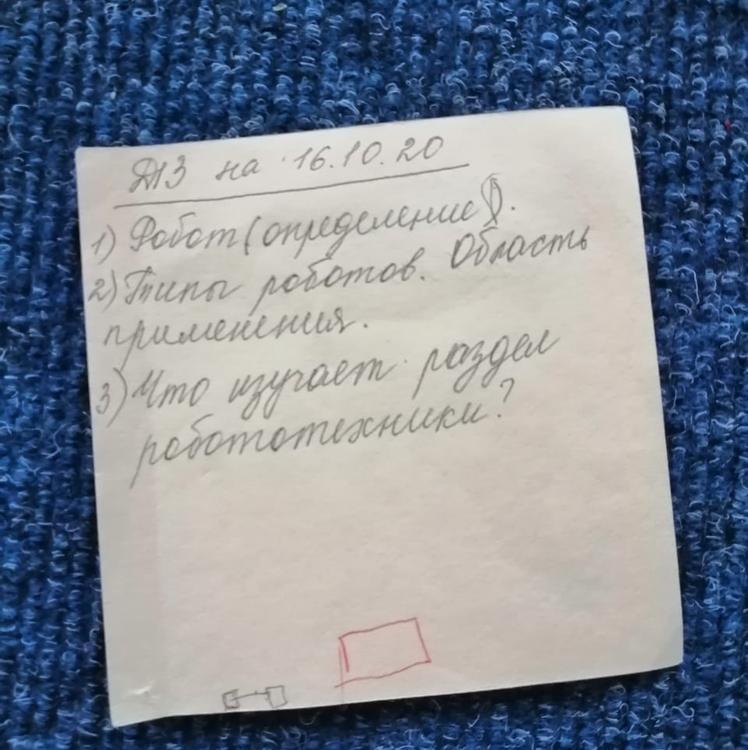 ДЗ на 16.10.20
1) Робот (определение).
2) Типы роботов. Область
применения.
3) Что изучает раздел
робототехники?